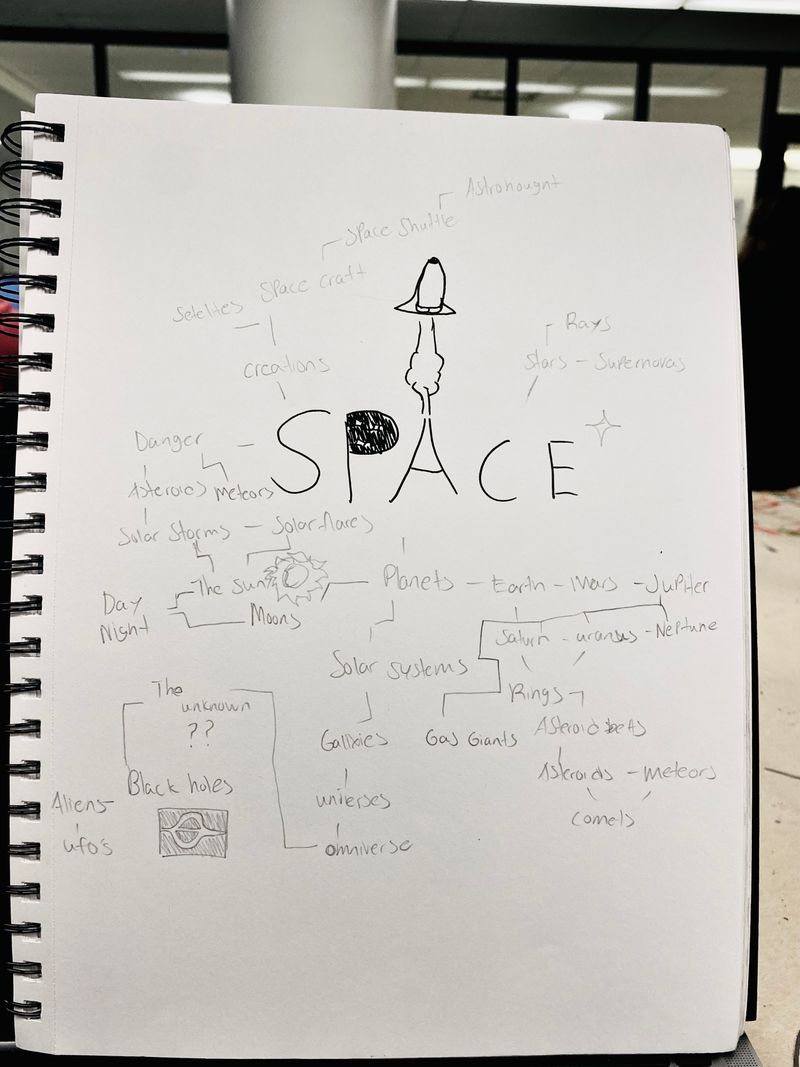 Astronought
Space Shuttle
Space craft
Satelites
Rays
creations
Stars - Supernovas
SPACE
Danger
Asteroids meteors
Solar Storms - Solar flares
The Sun
Planets - Earth - Mars - Jupiter
Day
Night
Moons
Saturn - uranus - Neptune
Solar systems
The
unknown
??
Rings
Gallxies
Gas Giants
Asteroid belts
Black holes
Asteroids - meteors
Aliens
unierses
comets
ufo's
omniverse